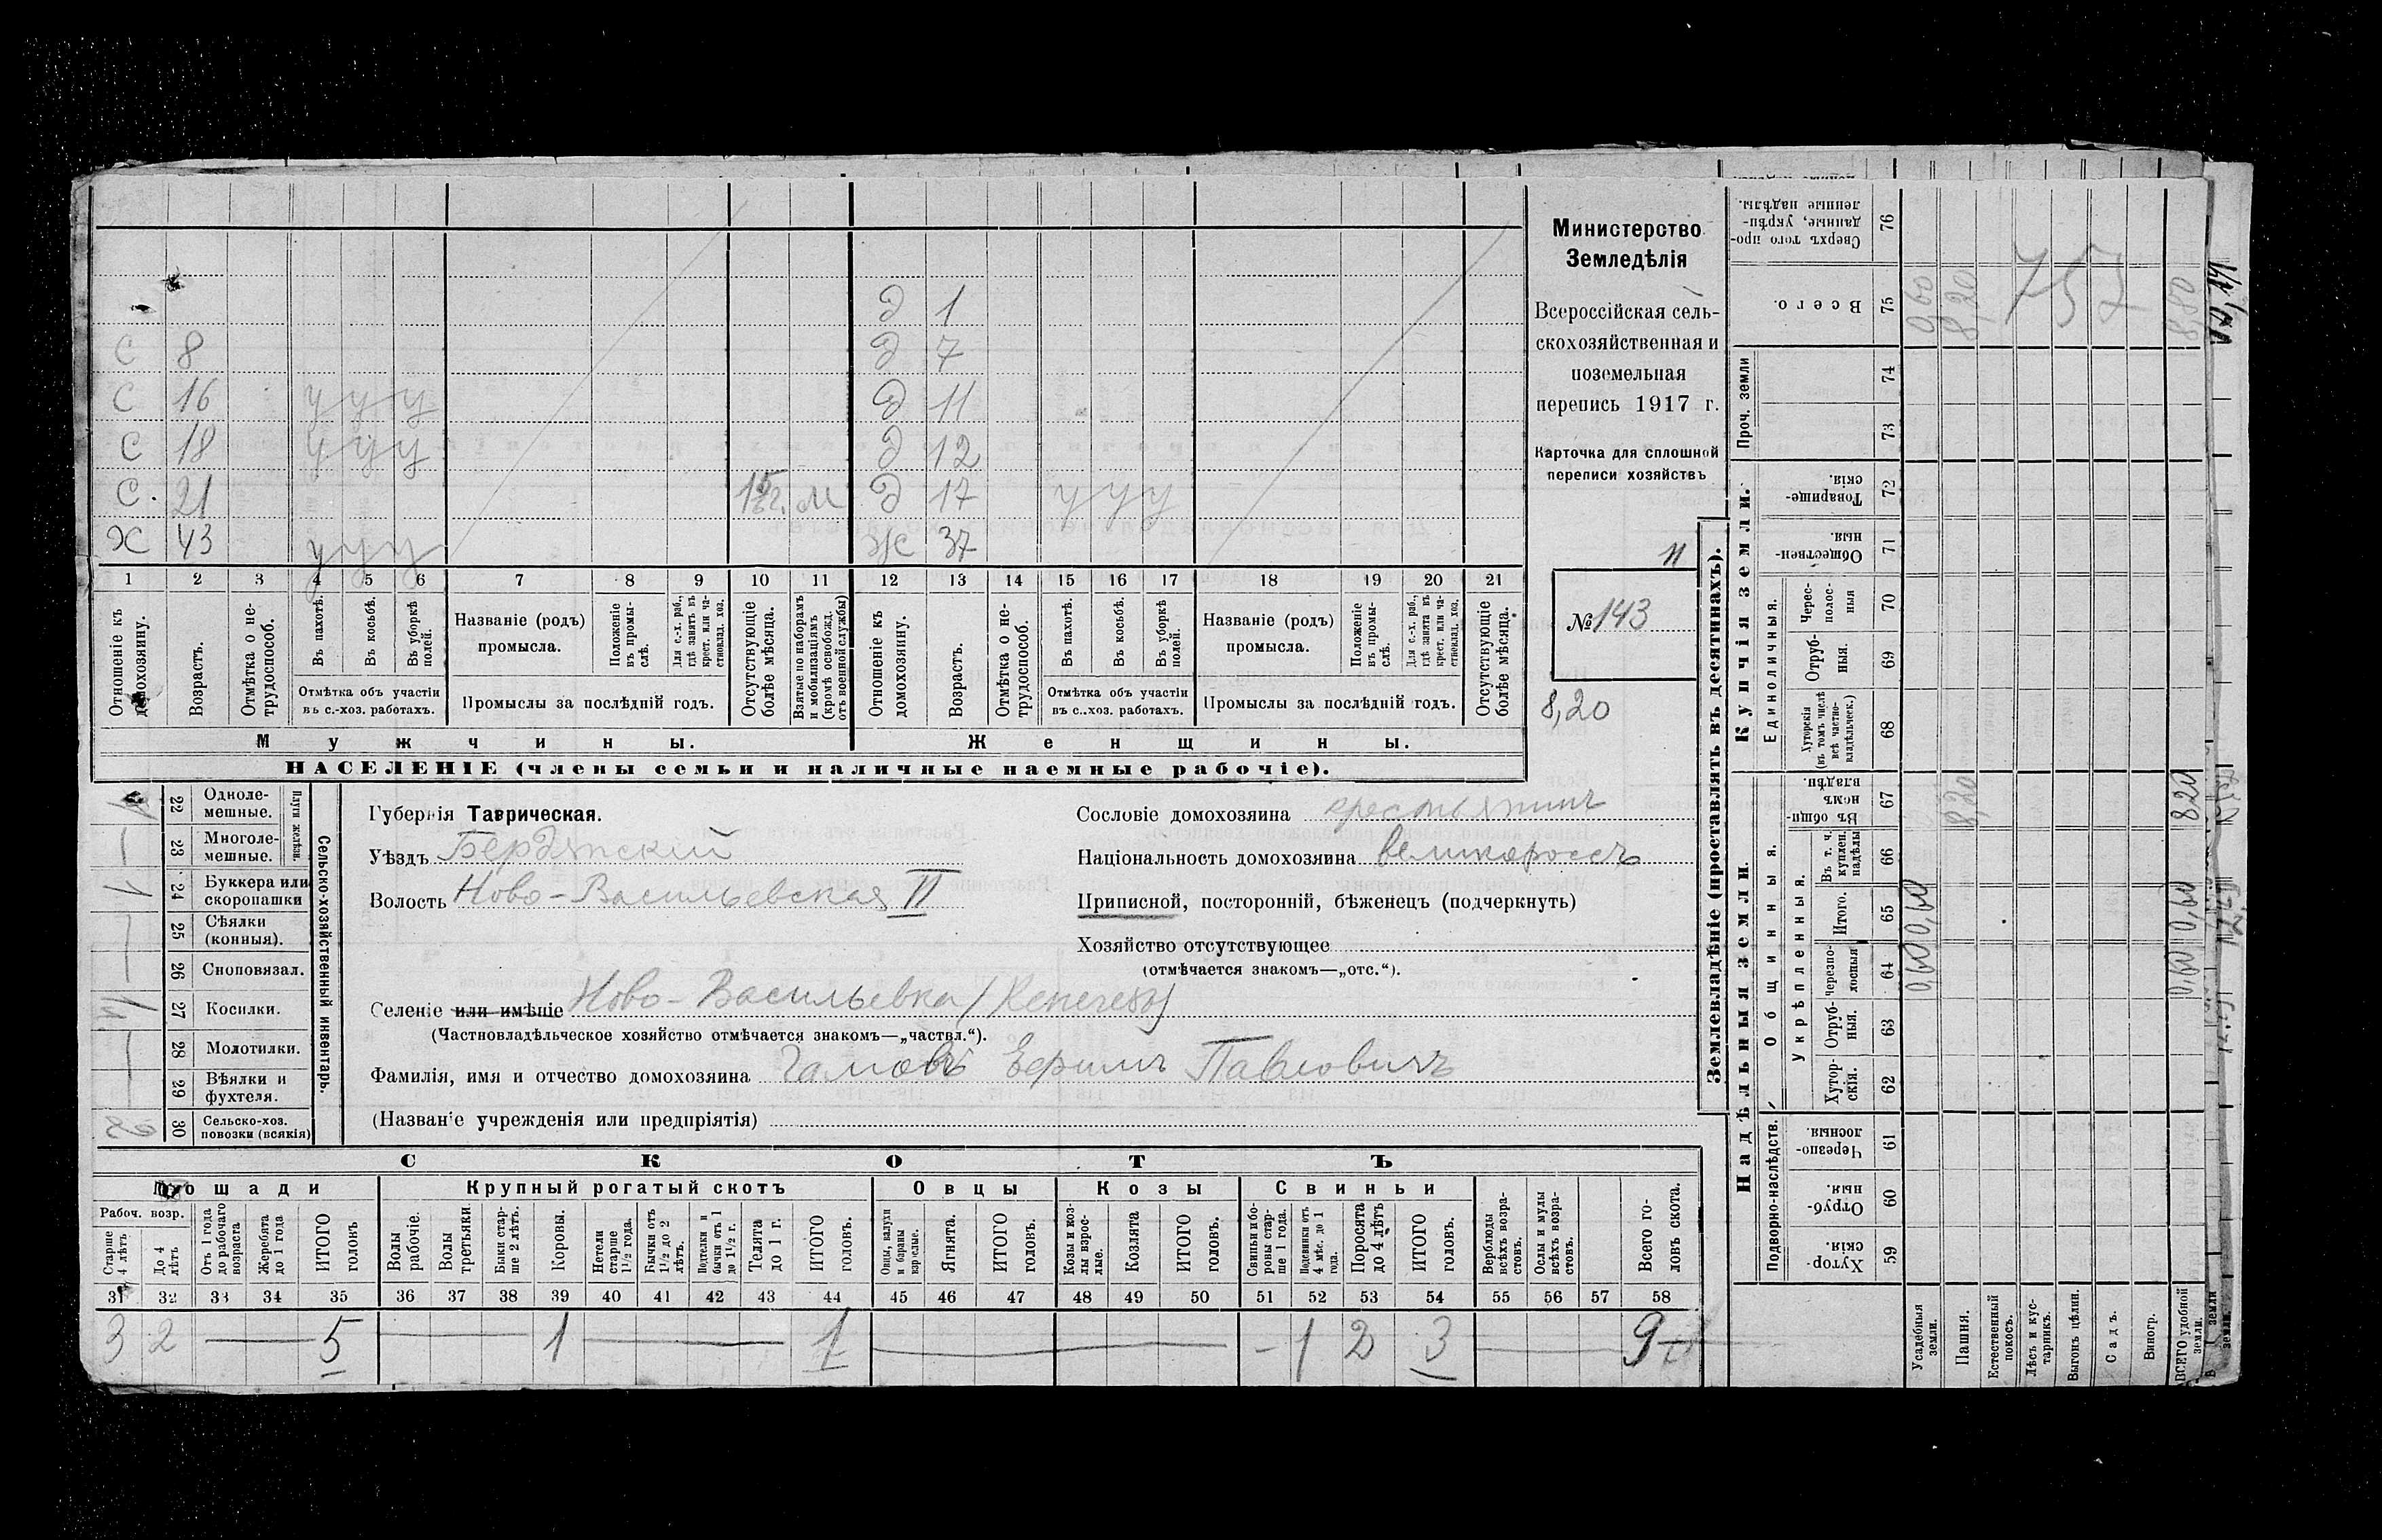 Министерство
Земледѣлія
Всероссійская сель-
скохозяйственная и
поземельная
перепись 1917 г.
Карточка для сплошной
переписи хозяйствъ
11
№ 143
8,20
д 1
С 8 д 7
С 16 у у у д 11
С 18 у у у д 12
С. 21 м д 17 у у у
Х 43 у у у Ж 37
1 2 3 4 5 6 7 8 9 10 11 12 13 14 15 16 17 18 19 20 21
Отношеніе къ домохозяину.
Возрастъ.
Отмѣтка о не-трудоспособ.
Въ пахотѣ.
Въ косьбѣ.
Въ уборкѣ полей.
Отмѣтка объ участіи
въ с.-хоз. работахъ.
Названіе (родъ)
промысла.
Положеніе въ промы-слѣ.
Для с.-х. раб., гдѣ занятъ въ крест. или ча-стновлад. хоз.
Промыслы за послѣдній годъ.
Отсутствующіе болѣе мѣсяца.
Взятые по наборамъ и мобилизаціямъ (кромѣ освобожд. отъ военной службы)
Отношеніе къ домохозяину.
Возрастъ.
Отмѣтка о не-трудоспособ.
Въ пахотѣ.
Въ косьбѣ.
Въ уборкѣ полей.
Отмѣтка объ участіи
въ с..хоз. работахъ.
Названіе (родъ)
промысла.
Положеніе въ промы-слѣ.
Для с.-х. раб., гдѣ занята въ крест. или ча-стновлад. хоз.
Промыслы за послѣдній годъ.
Отсутствующіе болѣе мѣсяца.
Мужчины. Женщины.
НАСЕЛЕНІЕ (члены семьи и наличные наемные рабочіе).
Сельско-хозяйственный инвентарь.
Плуги желѣзн.
22 Одноле-мешные.
23 Многоле-мешные.
1 24 Буккера или скоропашки
25 Сѣялки (конныя).
26 Сноповязал.
27 Косилки.
28 Молотилки.
29 Вѣялки и фухтеля.
2 30 Сельско-хоз. повозки (всякія)
Губернія Таврическая.
Уѣздъ Бердянский
Волость Ново-Васильевская II
Сословіе домохозяина крестьянинъ
Національность домохозяина великороссъ
Приписной, посторонній, бѣженецъ (подчеркнуть)
Хозяйство отсутствующее
(отмѣчается знакомъ—„отс.“).
Селеніе или имѣніе Ново-Васильевка
(Частновладѣльческое хозяйство отмѣчается знакомъ—„частвл.“).
Фамилія, имя и отчество домохозяина Павловичъ
(Названіе учрежденія или предпріятія)
СКОТЪ
Лошади Крупный рогатый скотъ Овцы Козы Свиньи
Рабоч. возр.
Старше 4 лѣтъ
До 4 лѣтъ
Отъ 1 года до рабочаго возраста
Жеребята до 1 года
ИТОГО головъ
Волы рабочіе.
Волы третьяки.
Быки стар-ше 2 лѣтъ.
Коровы.
Нетели старше 1½ года.
Бычки отъ 1½ до 2 лѣтъ.
Подтелки и бычки отъ 1 до 1½ г.
Телята до 1 г.
ИТОГО головъ.
Овцы, валухи и бараны взрослые.
Ягнята.
ИТОГО головъ.
Козы и коз-лы взрос-лые.
Козлята
ИТОГО головъ.
Свиньи и бо-ровы стар-ше 1 года.
Подсвинки отъ 4 мѣс. до 1 года.
Поросята до 4 лѣтъ
ИТОГО головъ.
Верблюды всѣхъ возра-стовъ.
Ослы и мулы всѣхъ возра-стовъ.
Всего го-ловъ скота.
31 32 33 34 35 36 37 38 39 40 41 42 43 44 45 46 47 48 49 50 51 52 53 54 55 56 57 58
3 2 — 5 — 1 — 1 — - 1 2 3 — 9
Землевладѣніе (проставлять въ десятинахъ).
Надѣльныя земли. Купчія земли.
Проч. земли
Подворно-наслѣдств. Общинныя.
Укрѣпленныя.
Единоличныя.
Сверхъ того про-данные, укрѣп-ленные надѣлы. 76
Всего. 75
74
73
Товарище-скія. 72
Обществен-ныя. 71
Черес-полос-ныя 70
Отруб-ныя. 69
Хуторскія (въ томъ числѣ всѣ частно-владѣльческ.) 68
Въ общин-номъ владѣн. 67
Въ т. ч. куплен. надѣлы 66
Итого. 65
Черезпо-лосныя 64
Отруб-ныя. 63
Хутор-скія. 62
Черезпо-лосныя 61
Отруб-ныя. 60
Хутор-скія. 59
Усадебныя земли. 0,60 0,60 0,60
Пашня. 8,20 8,20
Естественный покосъ.
Лѣсъ и кус-тарникъ.
Выгонъ цѣлин.
Садъ.
Виногр.
ВСЕГО удобной земли. 0,60 0,60 8,20 8,80
757